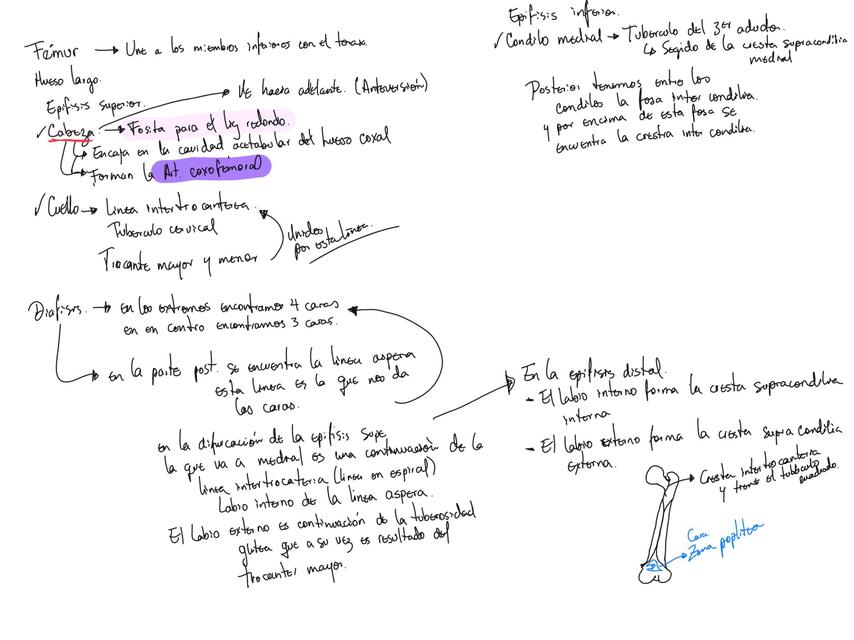 Fémur → Une a los miembros inferiores con el torax.
Hueso largo.
Epifisis superior.
Ve hacia adelante. (Anteversión)
✓ Cabeza → Fosita para el lig redondo.
→ Encaja en la cavidad acetabular del hueso coxal
→ Forman la Art. coxofemoral
✓ Cuello → Linea intertrocanterea.
Tuberculo cervical
Trocante mayor y menor
Unidos
por esta linea.
Diafisis. → en los extremos encontramos 4 caras
en en contro encontramos 3 caras.
→ en la parte post. se encuentra la linea aspera
esta linea es la que nos da
las caras.
en la difucación de la epifisis supe
la que va a medial es una continuación de la
linea intertrocateria (linea en espiral)
Labio interno de la linea aspera.
El labio externo es continuación de la tuberosidad
glutea que a su vez es resultado del
trocanter mayor.
Epifisis inferior.
✓ Condilo medial → Tuberculo del 3er aductor.
↳ Segido de la cresta supracondilia
medial
Posterior tenemos entre los
condilos la fosa inter condilia.
y por encima de esta fosa se
encuentra la crestra inter condilia.
En la epifisis distal.
- El labio interno forma la cresta supracondilia
interna
- El labio externo forma la cresta supra condilia
externa.
Cresta intertrocanterea
y trens el tubúculo
cuadrado.
Cara
Zona poplitea